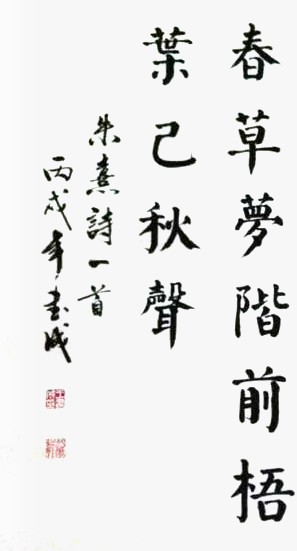 春草夢階前梧
葉己秋聲
朱熹詩一首
丙戌年書成